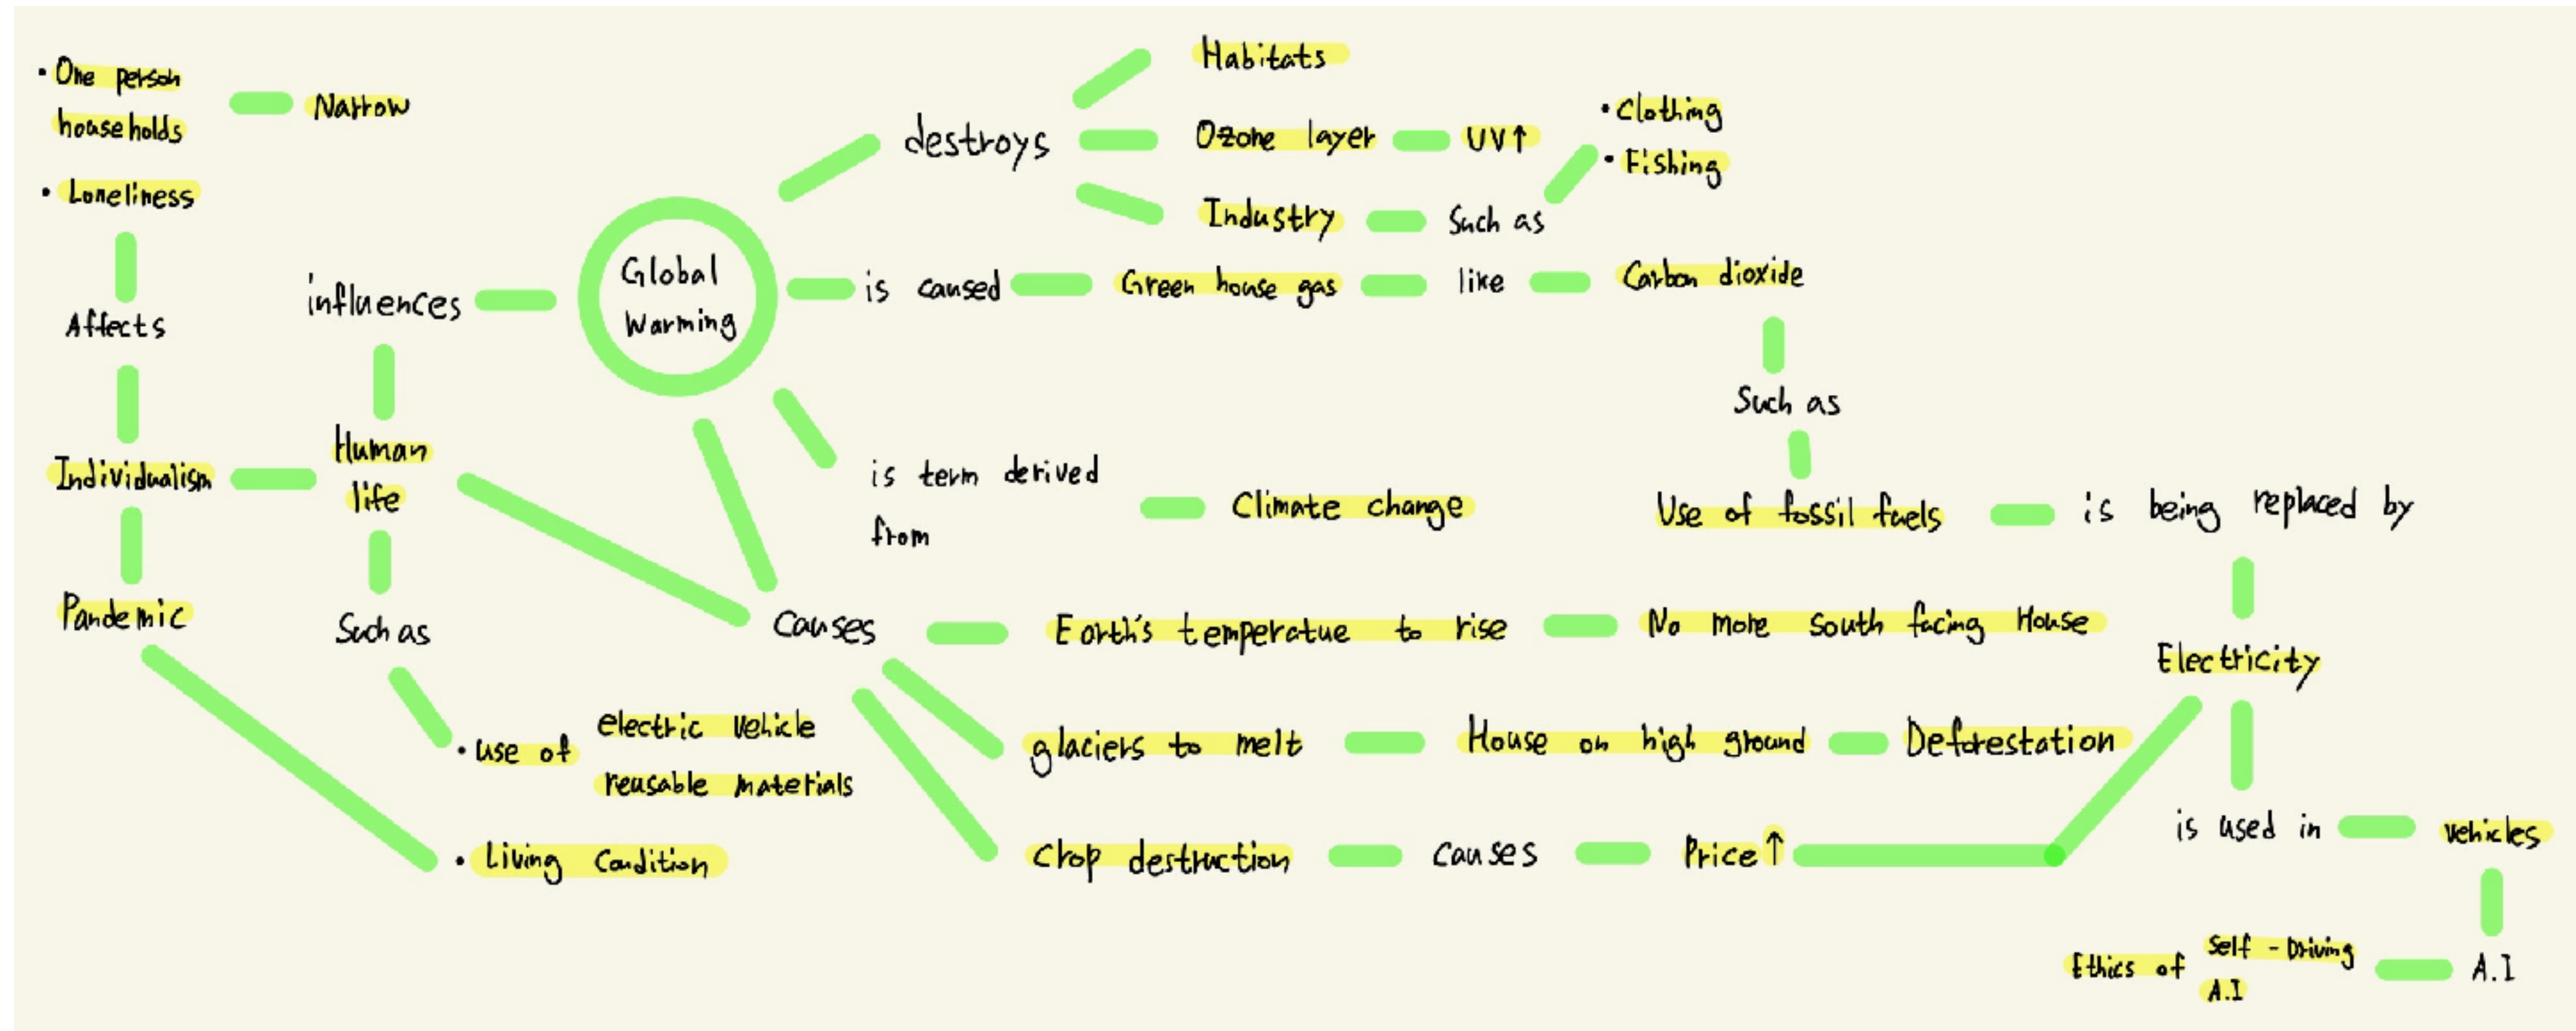 · One person
households
Narrow
· Loneliness
Affects
Individualism
Pandemic
influences
Human
life
Such as
· use of
electric vehicle
reusable materials
· Living Condition
Global
Warming
destroys
Habitats
Ozone layer
UV↑
Industry
Such as
· Clothing
· Fishing
is caused
Green house gas
like
Carbon dioxide
Such as
Use of fossil fuels
is being replaced by
Electricity
is used in
vehicles
A.I
Ethics of
Self - Driving
A.I
is term derived
from
Climate change
Causes
Earth's temperatue to rise
No more south facing House
glaciers to melt
House on high ground
Deforestation
Crop destruction
causes
Price↑